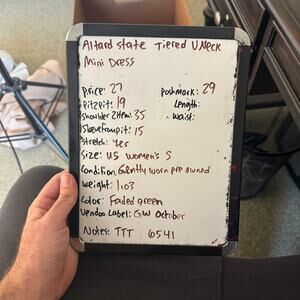 Altard state Tiered V Neck
Mini Dress
Price: 27
Poshmark: 29
Pit2pit: 19
Length:
Shoulder 2 Hem: 35
Waist:
Sleeve from pit: 15
Stretch: Yes
Size: US Women's S
Condition: Gently worn pre owned
Weight: 1.03
Color: Faded green
Vendoo Label: GW October
Notes: TTT 6541